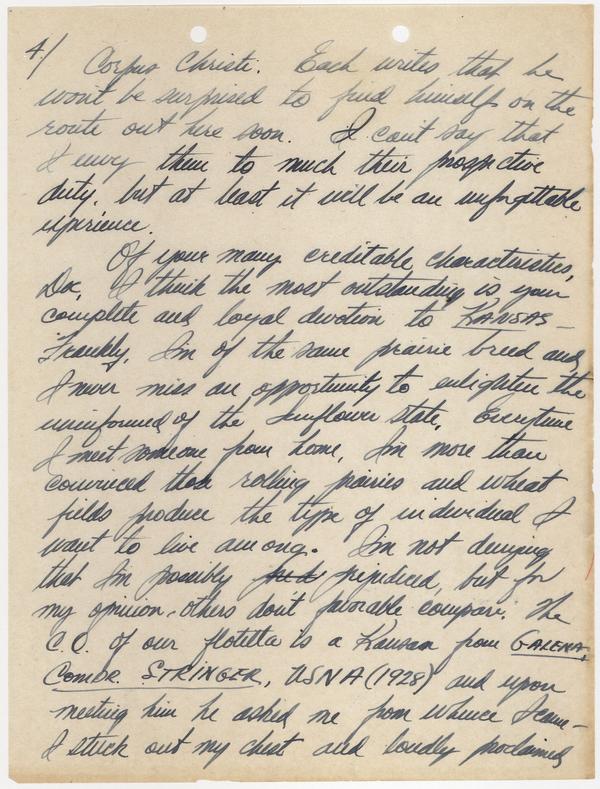 4/
Corpus Christi. Each writes that he
won't be surprised to find himself on the
route out here soon. I can't say that
I envy them to much their prospective
duty, but at least it will be an unforgettable
experience.
Of your many creditable characteristics,
Doc, I think the most outstanding is your
complete and loyal devotion to KANSAS -
Frankly, I'm of the same prairie breed and
I never miss an opportunity to enlighten the
uninformed of the sunflower state. Everytime
I meet someone from home, I'm more than
convinced that rolling prairies and wheat
fields produce the type of individual I
want to live among. I'm not denying
that I'm possibly prejudiced, but for
my opinion - others don't favorable compare. The
C.O. of our flotetta is a Kansan from GALENA,
COMDR. STRINGER, USNA (1928) and upon
meeting him he asked me from whence I came -
I stuck out my chest and loudly proclaimed